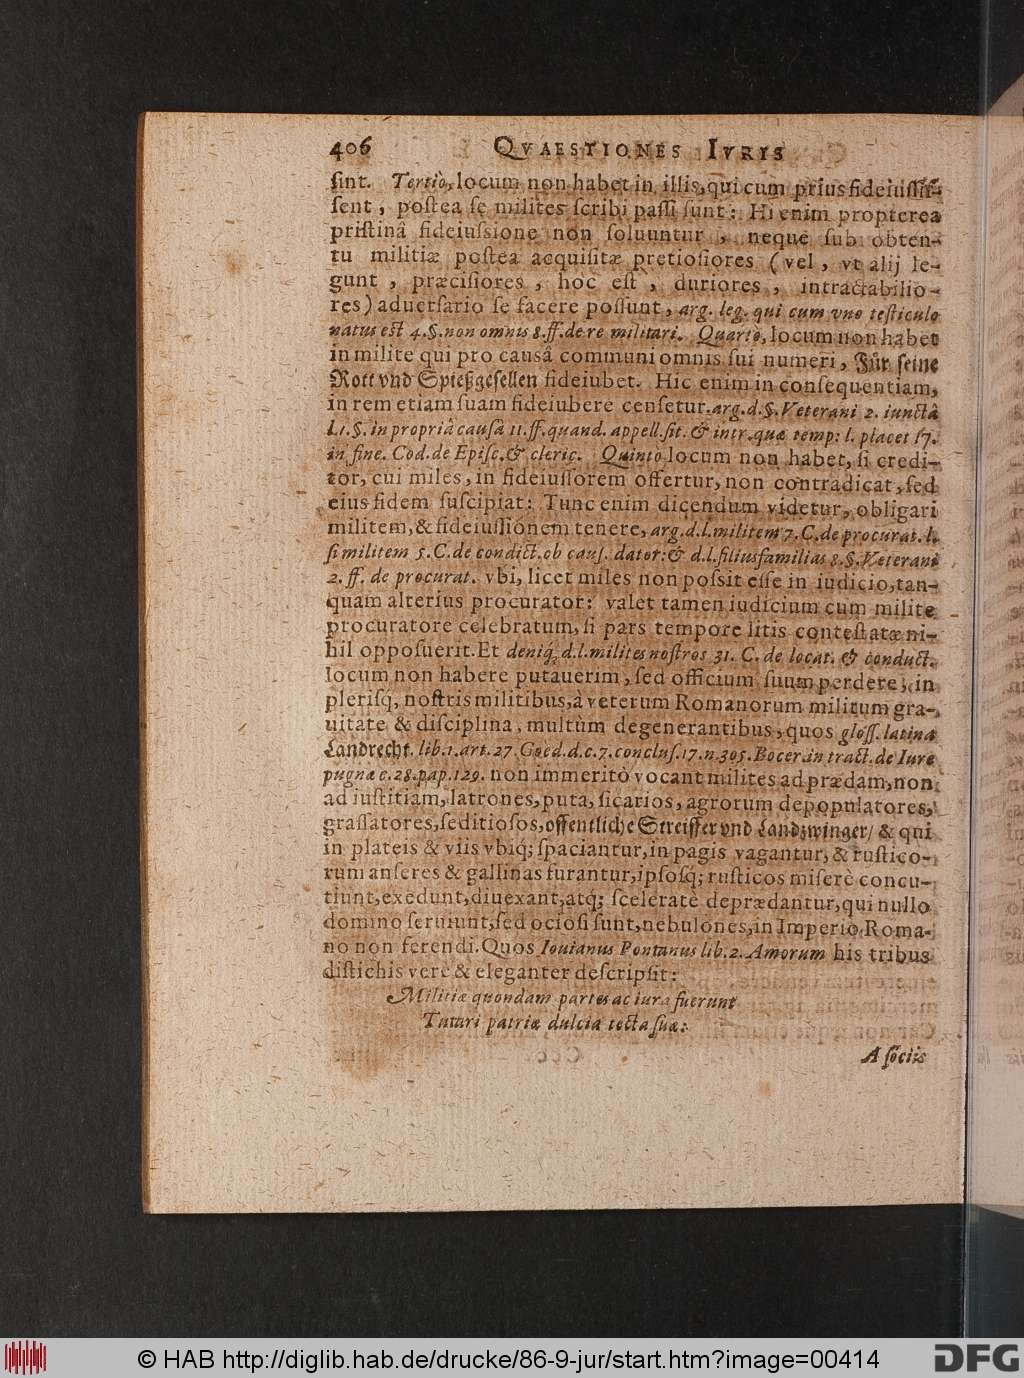 406 QVAESTIONES IVRIS
ſint. Tertiò, locum non habet in illis, qui cum prius fideiuſſiſ-
ſent, poſtea ſe milites ſcribi paſſi ſunt: Hi enim propterea
priſtinâ fideiuſsione non ſoluuntur, neque ſub obten-
tu militiæ poſtea acquiſitæ pretioſiores (vel, vt alij le-
gunt, præciſiores, hoc eſt, duriores, intractabilio-
res) aduerſario ſe facere poſſunt, arg. leg. qui cum vno teſticulo
natus eſt 4. §. non omnis 8. ff. de re militari. Quartò, locum non habet
in milite qui pro causâ communi omnis ſui numeri, Für ſeine
Rott vnd Spießgeſellen fideiubet. Hic enim in conſequentiam,
in rem etiam ſuam fideiubere cenſetur. arg. d. §. Veterani 2. iunctâ
L 1. §. in propriâ causâ 11. ff. quand. appell. ſit. & intr. quæ temp: l. placet 17.
in fine. Cod. de Epiſc. & cleric. Quintò locum non habet, ſi credi-
tor, cui miles, in fideiuſſorem offertur, non contradicat, ſed
eius fidem ſuſcipiat: Tunc enim dicendum videtur, obligari
militem, & fideiuſſionem tenere, arg. d. l. militem 7. C. de procurat. l.
ſi militem 5. C. de condict. ob cauſ. dator: & d. l. filiusfamilias 8. §. Veterani
2. ff. de procurat. vbi, licet miles non poſsit eſſe in iudicio, tan-
quam alterius procurator: valet tamen iudicium cum milite
procuratore celebratum, ſi pars tempore litis conteſtatæ ni-
hil oppoſuerit. Et deniq; d. l. milites noſtros 31. C. de locat. & conduct.
locum non habere putauerim, ſed officium ſuum perdere, in
pleriſq; noſtris militibus, à veterum Romanorum militum gra-
uitate & diſciplina, multùm degenerantibus, quos gloſſ. latina
Landrecht. lib. 1. art. 27. Goed. d. c. 7. concluſ. 17. n. 305. Bocer. in tract. de Iure
pugnæ c. 28. pag. 129. non immeritò vocant milites ad prædam, non
ad iuſtitiam, latrones, puta, ſicarios, agrorum depopulatores,
graſſatores, ſeditioſos, offentliche Streiffer vnd Landzwinger / & qui
in plateis & viis vbiq; ſpaciantur, in pagis vagantur, & ruſtico-
rum anſeres & gallinas furantur, ipſoſq; ruſticos miſerè concu-
tiunt, exedunt, diuexant, atq; ſceleratè deprædantur, qui nullo
domino ſeruiunt, ſed ocioſi ſunt, nebulones, in Imperio Roma-
no non ferendi. Quos Iouianus Pontanus lib. 2. Amorum his tribus
diſtichis verè & eleganter deſcripſit:
Militiæ quondam partes ac iura fuerunt
Tutari patriæ dulcia tecta ſuæ:
A ſociis
© HAB http://diglib.hab.de/drucke/86-9-jur/start.htm?image=00414
DFG